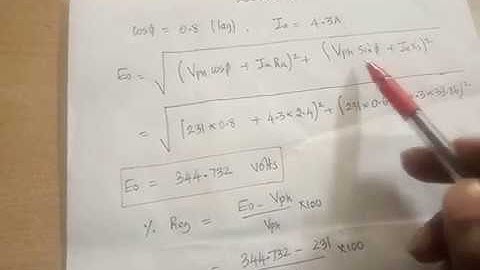 cosφ = 0.8 (lag), Ia = 4.3A
E0 = √(Vph cosφ + Ia Ra)² + (Vph Sinφ + Ia Xs)²
= √[231×0.8 + 4.3×2.4)² + (231×0.6 .3×33.36)²
E0 = 344.732 Volts
% Reg = E0 - Vph / Vph ×100
= 344.732 - 231 ×100